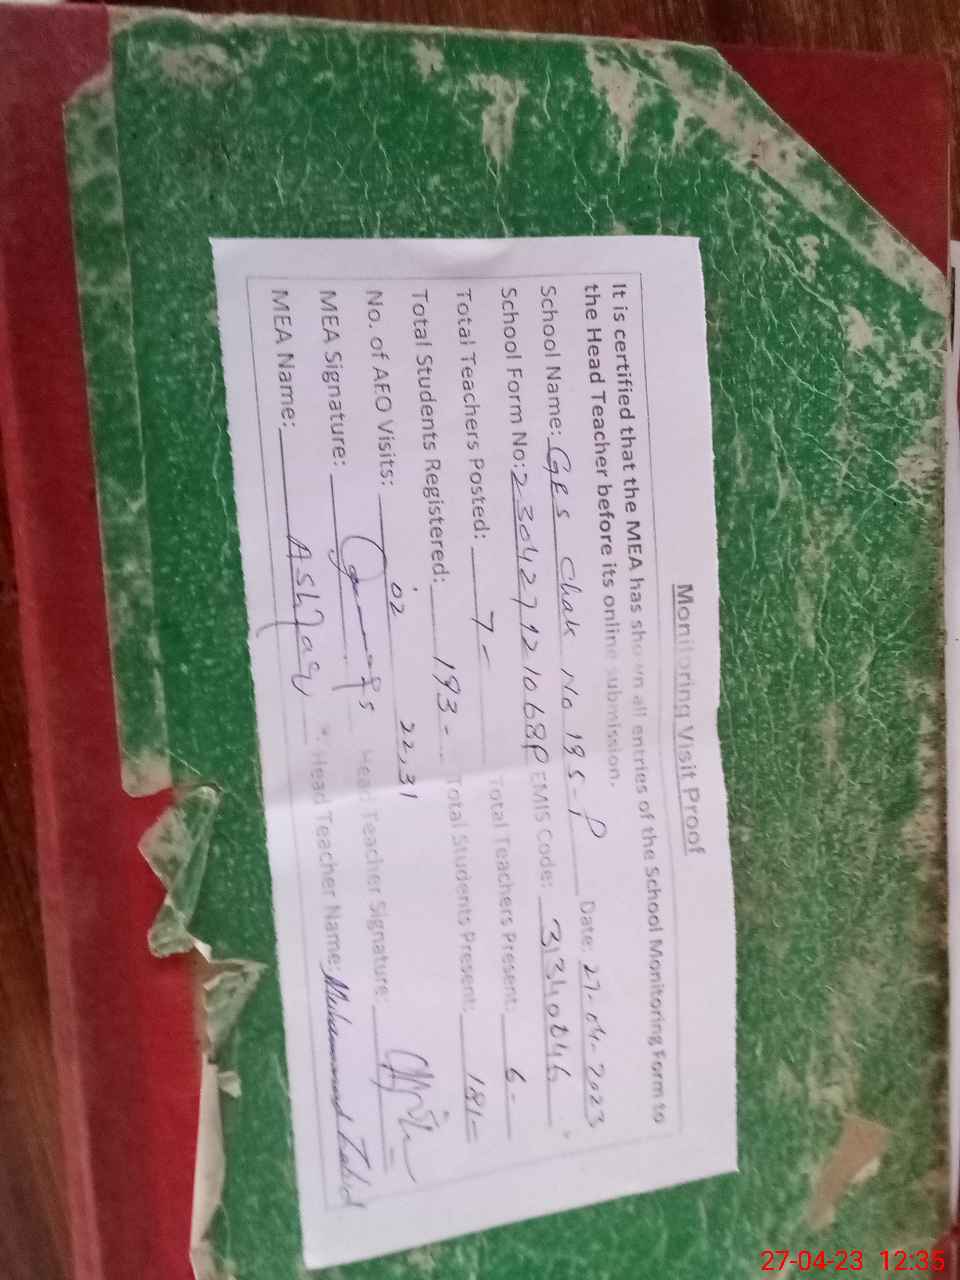 Monitoring Visit Proof
It is certified that the MEA has shown all entries of the School Monitoring Form to
the Head Teacher before its online submission.
School Name: GES Chak No 195-P Date: 27-04-2023
School Form No: 230427921068P EMIS Code: 31340846
Total Teachers Posted: 7- Total Teachers Present: 6-
Total Students Registered: 193- Total Students Present: 181-
No. of AEO Visits: 02 22,31
MEA Signature: Head Teacher Signature:
MEA Name: Ashfaq Head Teacher Name: Muhammad Zahid
27-04-23 12:35